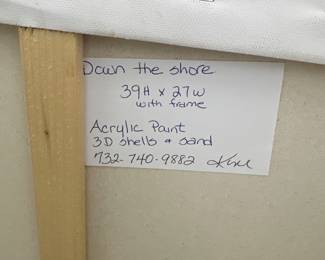 Down the shore
39H x 27W
with frame
Acrylic Paint
3D shells + sand
732-740-9882